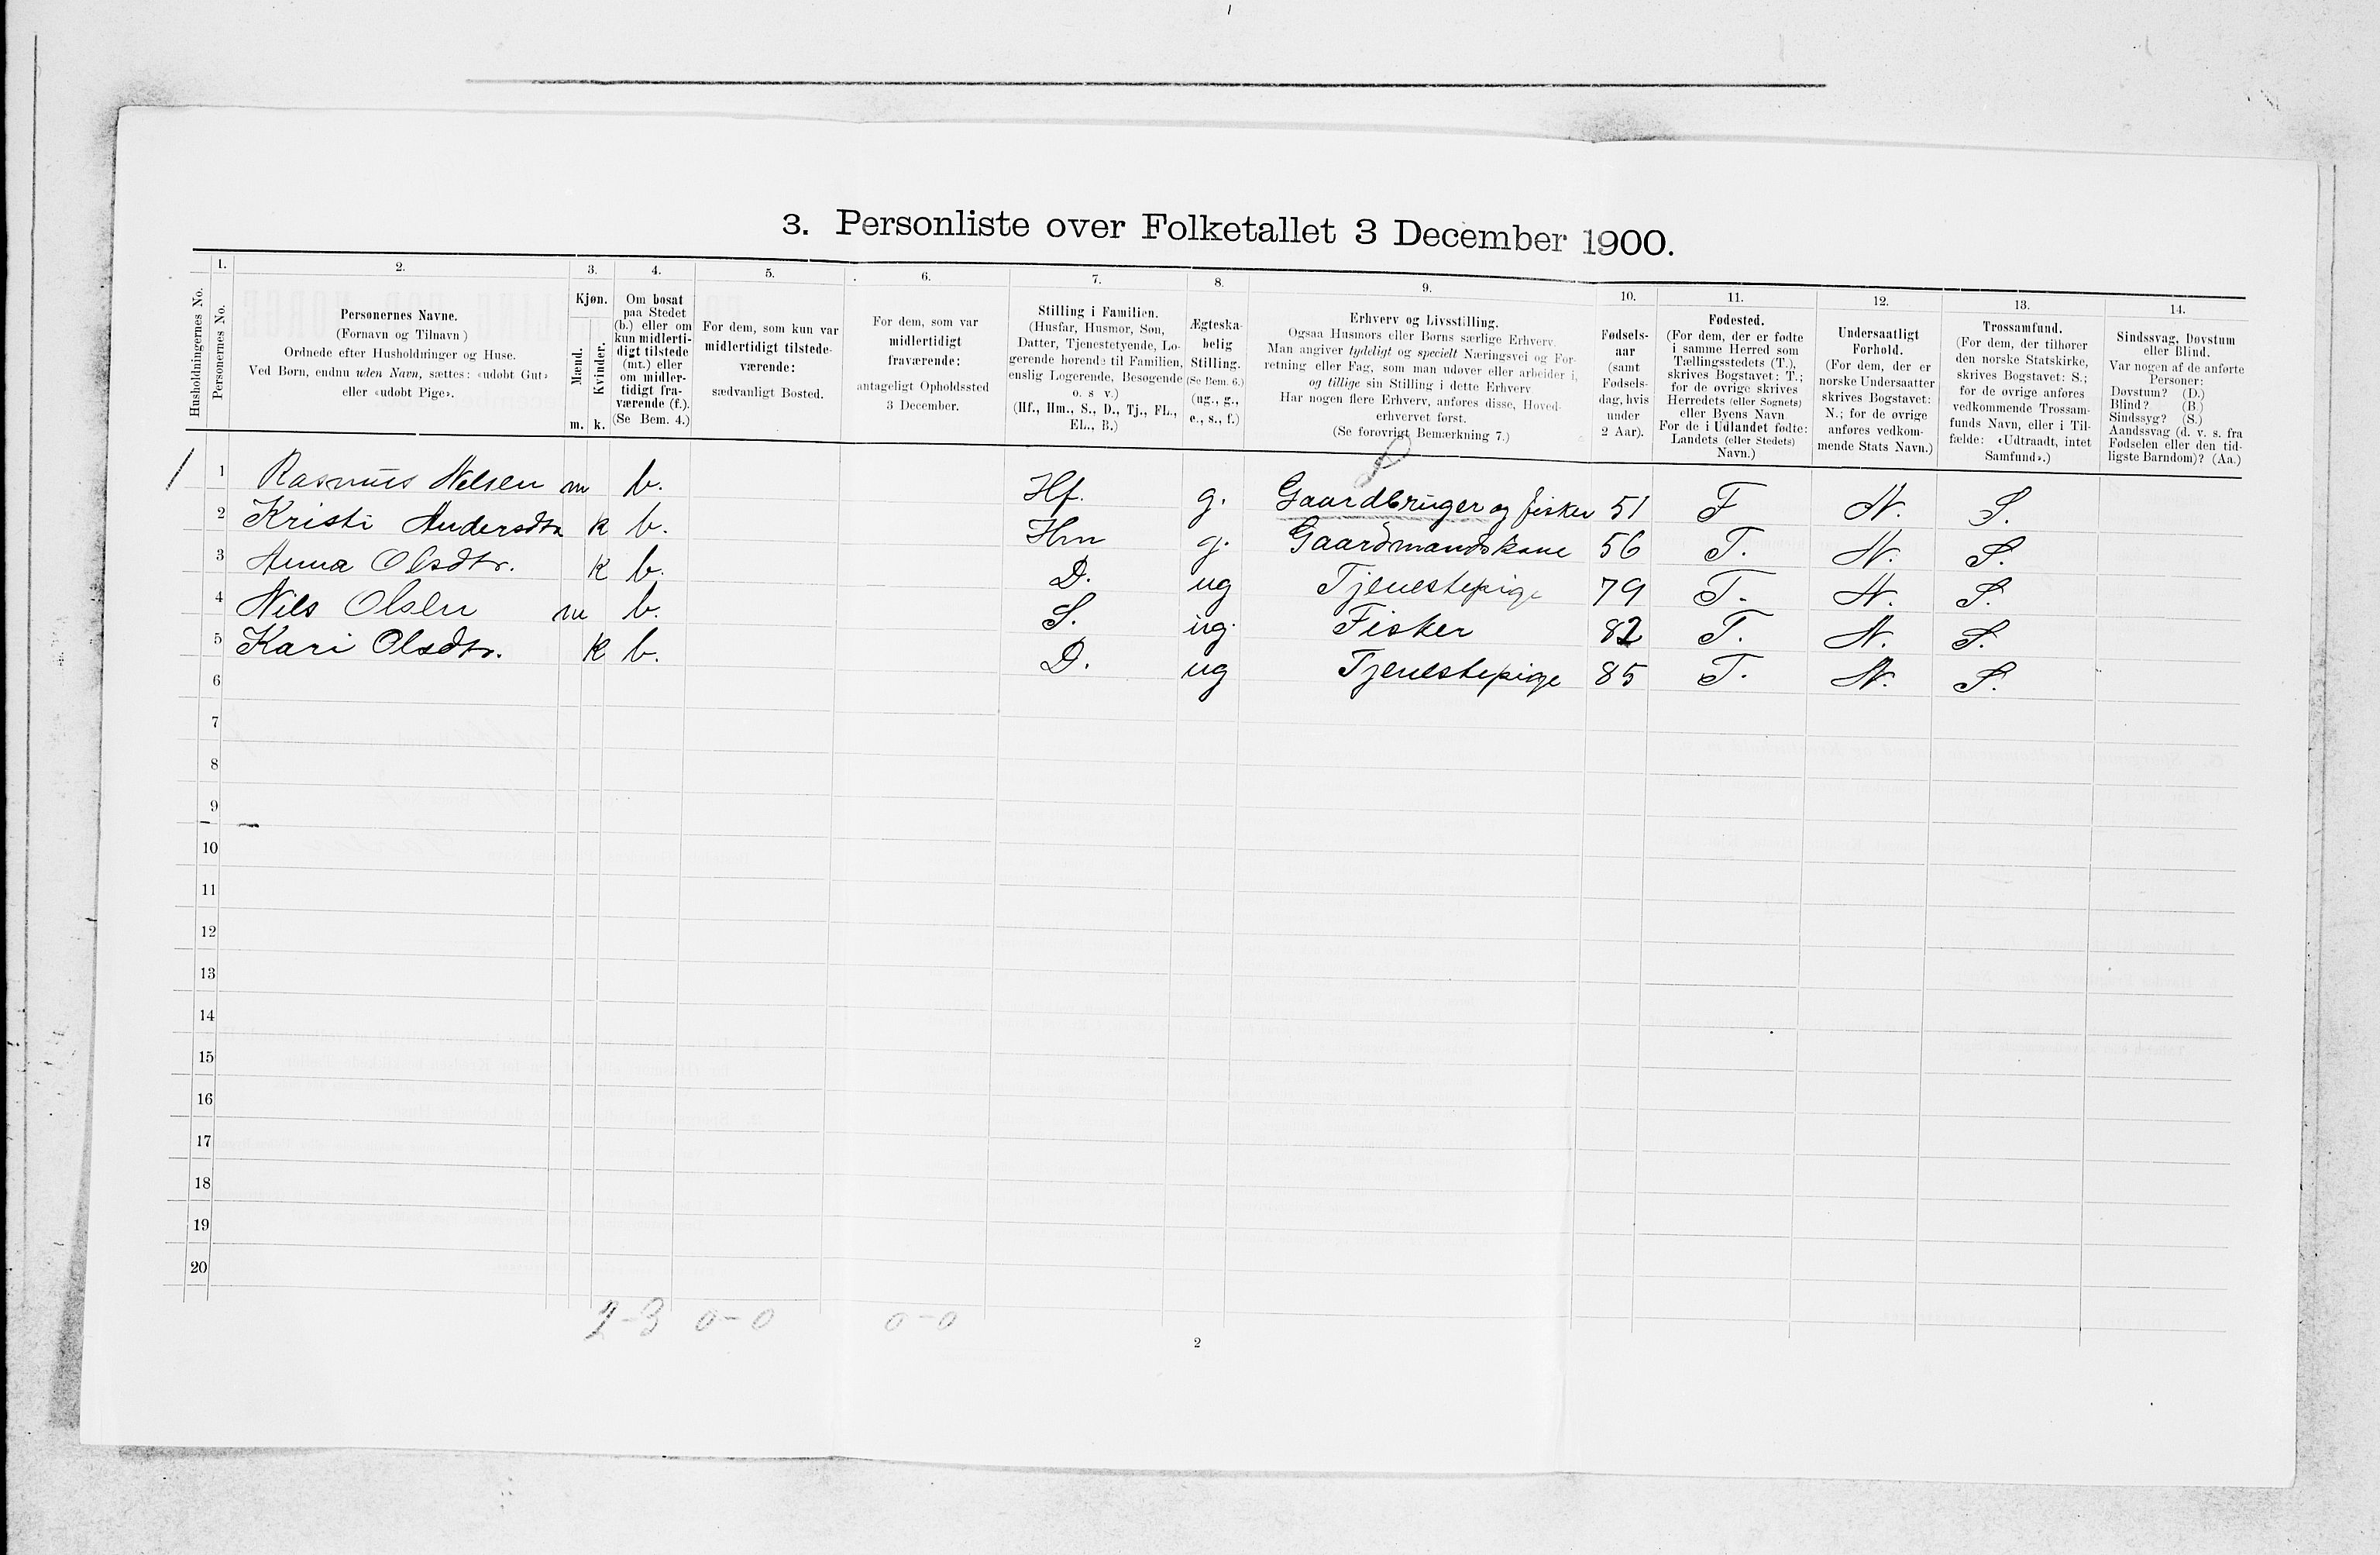 3. Personliste over Folketallet 3 December 1900.
1. 2. 3. 4. 5. 6. 7. 8. 9. 10. 11. 12. 13. 14.
Husholdningernes No.
Personernes No.
Personernes Navne.
(Fornavn og Tilnavn)
Ordnede efter Husholdninger og Huse.
Ved Børn, endnu uden Navn, sættes: «udøbt Gut»
eller «udøbt Pige».
Kjøn.
Mænd.
Kvinder.
m. k.
Om bosat
paa Stedet
(b.) eller om
kun midlerti-
digt tilstede
(mt.) eller
om midler-
tidigt fra-
værende (f.).
(Se Bem. 4.)
For dem, som kun var
midlertidigt tilstede-
værende:
sædvanligt Bosted.
For dem, som var
midlertidigt
fraværende:
antageligt Opholdssted
3 December.
Stilling i Familien.
(Husfar, Husmor, Søn,
Datter, Tjenestetyende, Lo-
gerende hørende til Familien,
enslig Logerende, Besøgende
o. s v.)
(Hf., Hm., S., D., Tj., FL.,
EL., B.)
Ægteska-
belig
Stilling.
(Se Bem. 6.)
(ug., g.,
e., s., f.)
Erhverv og Livsstilling.
Ogsaa Husmors eller Børns særlige Erhverv.
Man angiver tydeligt og specielt Næringsvei og For-
retning eller Fag, som man udøver eller arbeider i,
og tillige sin Stilling i dette Erhverv
Har nogen flere Erhverv, anføres disse, Hoved-
erhvervet først.
(Se forøvrigt Bemærkning 7.)
Fødsels-
aar
(samt
Fødsels-
dag, hvis
under
2 Aar).
Fødested.
(For dem, der er fødte
i samme Herred som
Tællingsstedets (T.),
skrives Bogstavet: T.;
for de øvrige skrives
Herredets (eller Sognets)
eller Byens Navn
For de i Udlandet fødte:
Landets (eller Stedets)
Navn.)
Undersaatligt
Forhold.
(For dem, der er
norske Undersaatter
skrives Bogstavet:
N.; for de øvrige
anføres vedkom-
mende Stats Navn.)
Trossamfund.
(For dem, der tilhører
den norske Statskirke,
skrives Bogstavet: S.;
for de øvrige anføres
vedkommende Trossam-
funds Navn, eller i Til-
fælde: «Udtraadt, intet
Samfund».)
Sindssvag, Døvstum
eller Blind.
Var nogen af de anførte
Personer:
Døvstum? (D.)
Blind? (B.)
Sindssyg? (S.)
Aandssvag (d. v. s. fra
Fødselen eller den tid-
ligste Barndom)? (Aa.)
1 1 Rasmus Nelsen m b. Hf. g. Gaardbruger og fisker 51 F N. S.
2 Kristi Andersdtr k b. Hm g. Gaardmandskone 56 T. N. S.
3 Anna Olsdtr. k b. D. ug Tjenestepige 79 T. N. S.
4 Nils Olsen m b. S. ug. Fisker 82 T. N. S.
5 Kari Olsdtr. k b. D. ug Tjenestepige 85 T. N. S.
6
7
8
9
10
11
12
13
14
15
16
17
18
19
20
2-3 0-0 0-0
2